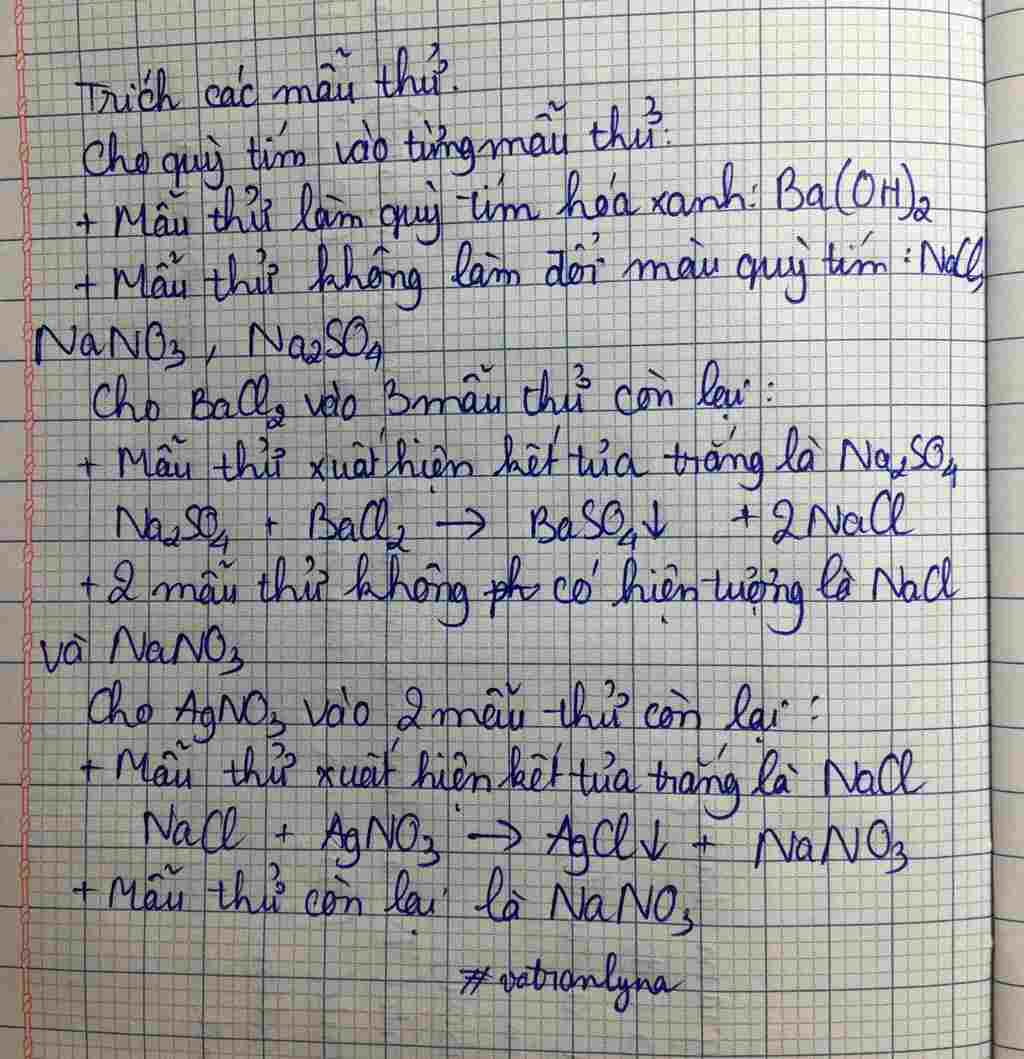 Trích các mẫu thử.
Cho quỳ tím vào từng mẫu thử:
+ Mẫu thử làm quỳ tím hóa xanh: Ba(OH)₂
+ Mẫu thử không làm đổi màu quỳ tím: NaCl,
NaNO₃, Na₂SO₄
Cho BaCl₂ vào 3 mẫu thử còn lại:
+ Mẫu thử xuất hiện kết tủa trắng là Na₂SO₄
Na₂SO₄ + BaCl₂ → BaSO₄↓ + 2NaCl
+ 2 mẫu thử không có hiện tượng là NaCl
và NaNO₃
Cho AgNO₃ vào 2 mẫu thử còn lại:
+ Mẫu thử xuất hiện kết tủa trắng là NaCl
NaCl + AgNO₃ → AgCl↓ + NaNO₃
+ Mẫu thử còn lại là NaNO₃
#votranlyna